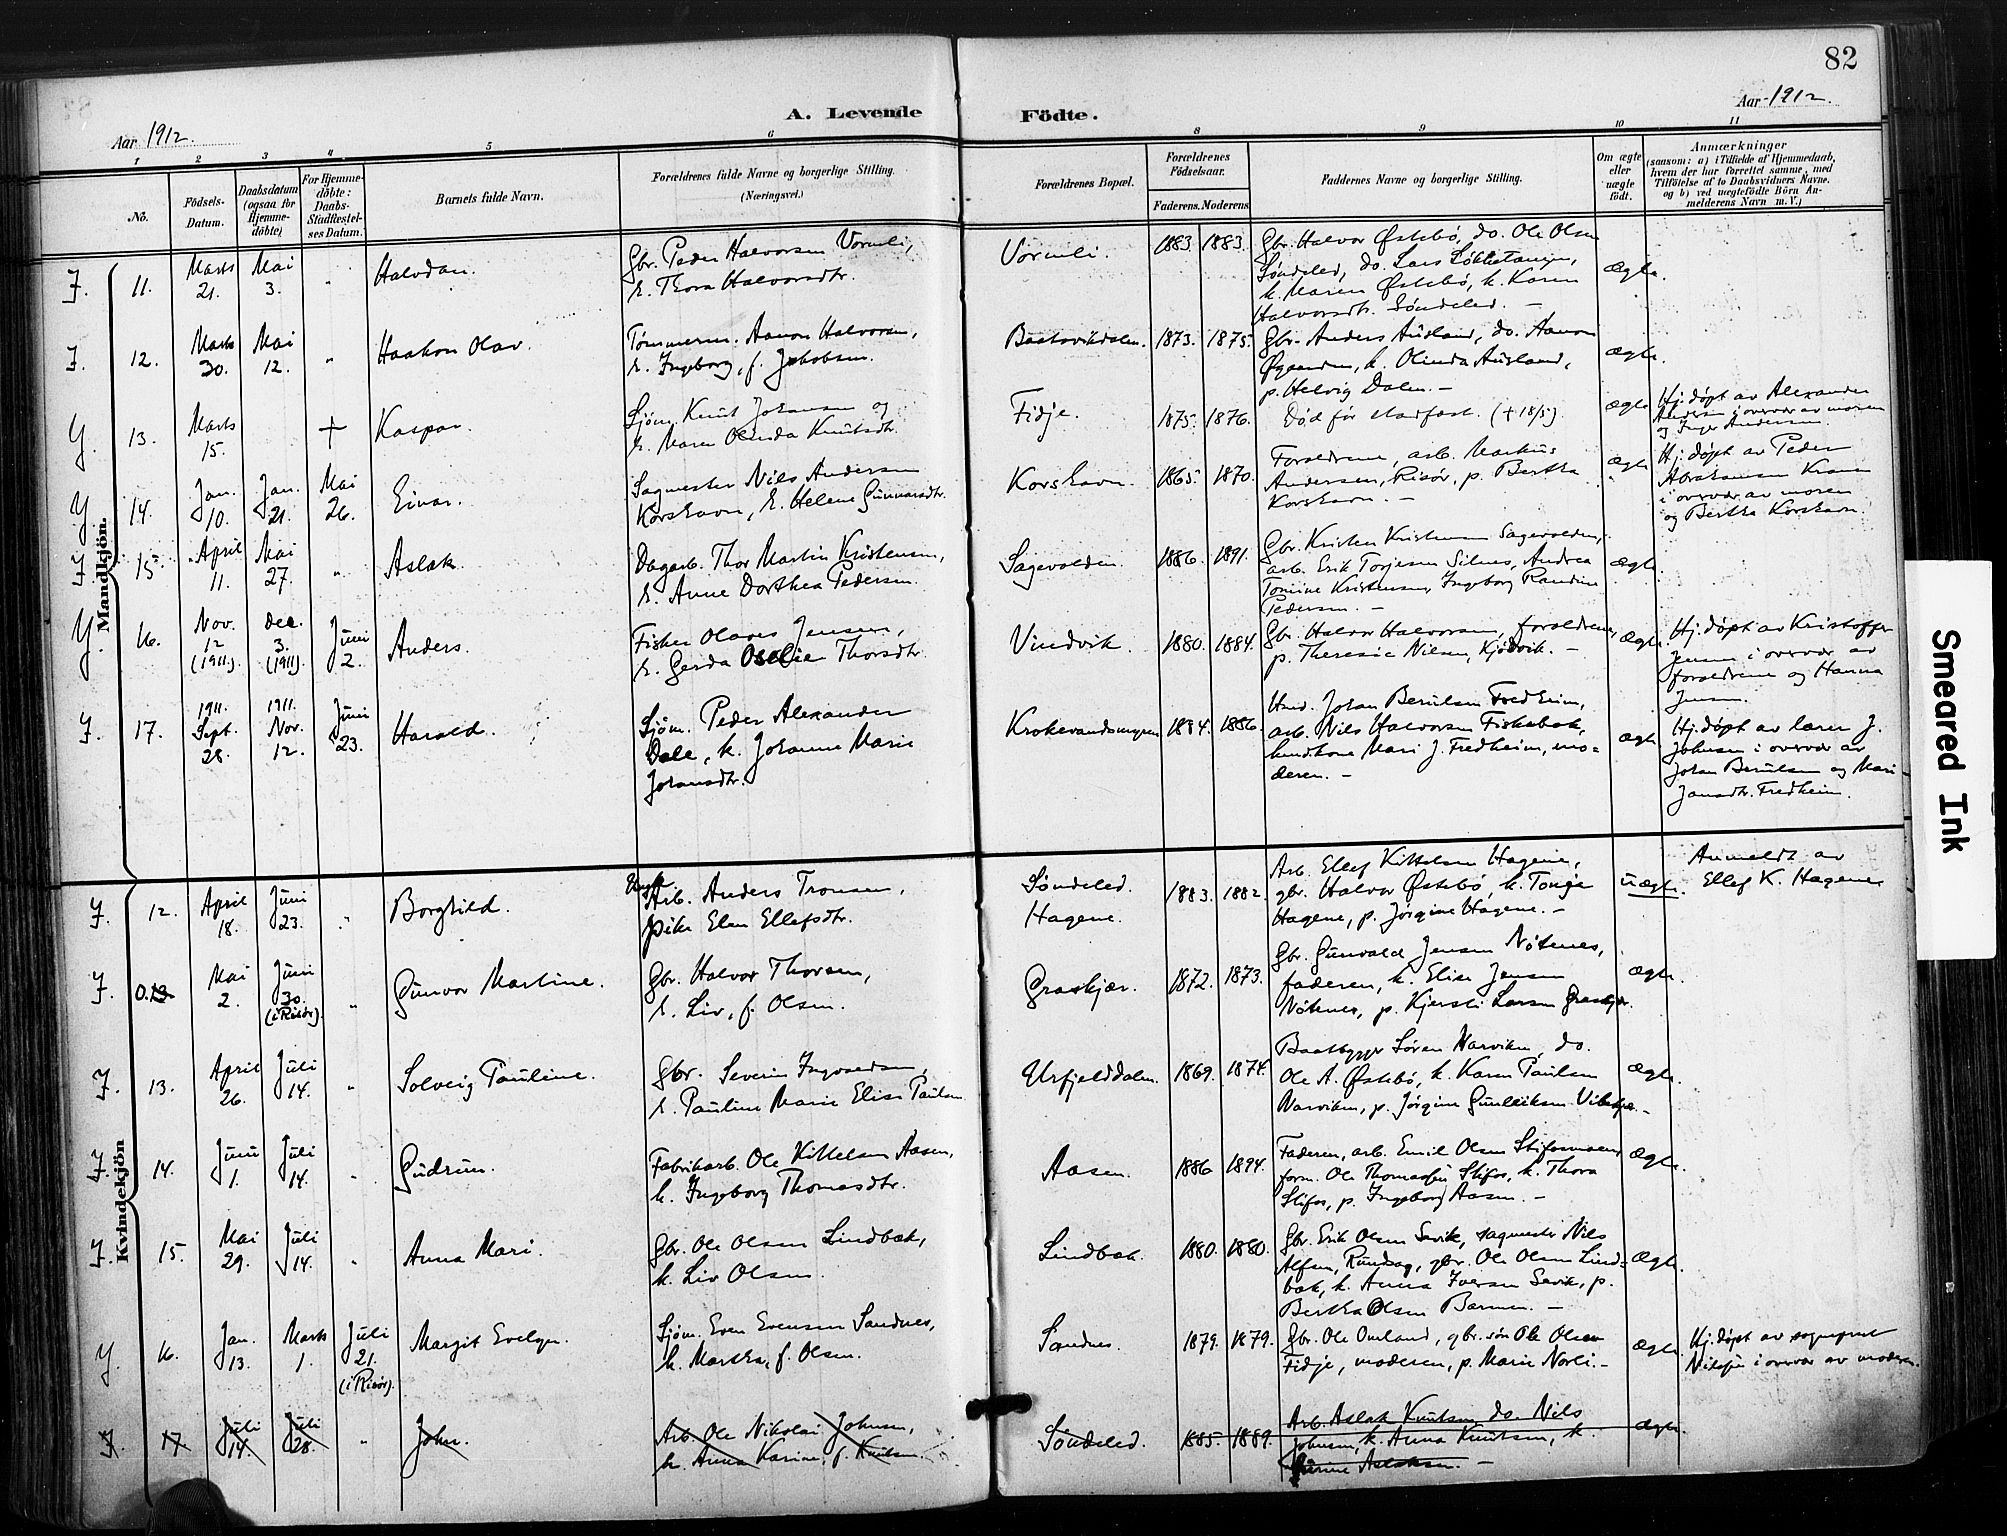 82
Aar 1912.
A. Levende Födte.
Aar 1912.
1 2 3 4 5 6 8 9 10 11
No.
Födsels-Datum.
Daabsdatum (ogsaa for Hjemme-döbte)
For Hjemme-döbte: Daabs-Stadfæstel-ses Datum.
Barnets fulde Navn.
Forældrenes fulde Navne og borgerlige Stilling.
(Næringsvei.)
Forældrenes Bopæl.
Forældrenes Födselsaar.
Faderens. Moderens
Faddernes Navne og borgerlige Stilling.
Om ægte eller uægte födt.
Anmærkninger
(saasom: a) i Tilfælde af Hjemmedaab,
hvem der har forrettet samme, med
Tilföielse af to Daabsvidners Navne,
og b) ved uegtefödte Börn An-
melderens Navn m. V.)
Mandkjön.
J. 11. Marts 21. Mai 3. " Halvdan.
Gbr. Peder Halvorsen Vormli,
h. Thora Halvorsdtr.
Vormli. 1883 1883.
Gbr. Halvor Østebø, do. Ole Olsen
Søndeled, do. Lars
k. Maren Østebø, k. Karen
Halvorsdtr. Søndeled. –
Ægte.
J. 12. Marts 30. Mai 12. " Haakon Olav.
Tømmerm. Aanon Halvorsen,
h. Ingeborg, f. Jakobsen.
1873. 1875.
Gbr. Anders Ausland, do. Aanon
k. Olinda Ausland,
p. Helvig Dalen. –
Ægte.
Y. 13. Marts 15. + Kaspar.
Sjøm. Knut Johansen og
h. Maren Olinda Knutsdtr.
Fidje. 1875. 1876.
Død før stadfæst. (+ 18/5)
Ægte
Hj. døpt av Alexander
Andersen i overvær av moren
og Inger Andersen.
Y. 14. Jan. 10. Jan. 21. Mai 26. Einar.
Sagmester Nils Andersen
Korshavn, h. Helene Gunvorsdtr.
Korshavn. 1865. 1870.
Forældrene, arb. Markus
Andersen, Risør, p. Bertha
Korshavn. –
Ægte
Hj. døpt av Peder
Abrahamsen
i overvær av moren
og Bertha Korshavn.
J. 15. April 11. Mai 27. " Aslak.
Dagarb. Thor Martin Kristensen,
h. Anne Dorthea Pedersen.
Sagevolden. 1886. 1891.
Gbr. Kristen Kristensen Sagevolden,
arb. Erik Torjesen Silnes, Andrea
Tomine Kristensen, Ingeborg Randine
Pedersen. –
Ægte.
Y. 16. Nov. 12 (1911). Dec. 3. (1911) Juni 2. Anders.
Fisker Olaves Jensen,
h. Gerda Thorsdtr.
Vindvik. 1880. 1884.
Gbr. Halvor Halvorsen, forældrene,
p. Theresie Nilsen, Kjødvik. –
Ægte.
Hj. døpt av Kristoffer
Jensen i overvær av
forældrene og Hanna
Jensen.
J. 17. 1911. Sept. 28. 1911. Nov. 12. Juni 23. Harald.
Sjøm. Peder Alexander
Dale, k. Johanne Marie
Johansdtr.
Krokevandsmyren 1884. 1886.
Johan Berulsen Fredheim,
arb. Nils Halvorsen Fiskebæk,
Mari J. Fredheim, mo-
deren. –
Ægte
Hj. døpt av lærer J.
Johnsen i overvær av
Johan Berulsen og Mari
Jonsdtr. Fredheim.
Kvindekjön
J. 12. April 18. Juni 23. " Borghild.
Ungk. Arb. Anders Tronsen,
pike Elen Ellefsdtr.
Søndeled.
Hagene. 1883. 1882.
Arb. Ellef Kittelsen Hagene,
gbr. Halvor Østebø, k. Tonje
Hagene, p. Jørgine Hagene. –
uægte.
Anmeldt av
Ellef K. Hagene
J. 0. 13 Mai 2. Juni 30. (i Risør). " Gunvor Martine.
Gbr. Halvor Thorsen,
h. Liv, f. Olsen.
Graskjær. 1872. 1873.
Gbr. Gunvald Jensen Nøtenes,
faderen, k. Elise Jensen
Nøtenes, p. Kjersti Larsen Graskjær.
Ægte.
J. 13. April 26. Juli 14. " Solveig Pauline.
Gbr. Severin Ingvoldsen,
h. Pauline Marie Elise Paulsen
Urfjelddalen. 1869. 1874.
Baatbygger Søren Narviken, do.
Ole A. Østebø, k. Karen Paulsen
Narviken, p. Jørgine Gunleiksen –
Ægte.
J. 14. Juni 1. Juli 14. " Gudrun.
Fabrikarb. Ole Kittelsen Aasen,
k. Ingeborg Thomasdtr.
Aasen. 1886 1894.
Faderen, arb. Emil Olsen Stifosmoen,
form. Ole Thomassen Stifos, k. Thora
Stifos, p. Ingeborg Aasen. –
Ægte.
J. 15. Mai 29. Juli 14. " Anna Mari.
Gbr. Ole Olsen Lindbæk,
k. Liv Olsen.
Lindbæk. 1880. 1880.
Gbr. Erik Olsen Sævik, sagmester Nils
Alfsen, Rundsag, gbr. Ole Olsen Lind-
bæk, k. Anna Iversen Sævik, p.
Bertha Olsen Barmen. –
Ægte.
Y. 16. Jan. 13. Marts 1. Juli 21. (i Risør). Margit Evelyn.
Sjøm. Even Evensen Sandnes,
k. Martha, f. Olsen.
Sandnes. 1879. 1879.
Gbr. Ole Omland, gbr. søn Ole Olsen
Fidje, moderen, p. Marie Norli. –
Ægte
Hj. døpt av sogneprest
i overvær av moderen.
J. 17 Juli 14. Juli 28. " John.
Arb. Ole Nikolai Johnsen,
k. Anna Karine, f. Knutsen.
Søndeled. 1885. 1889.
Arb. Aslak Knutsen, do. Nils
Johnsen, k. Anna Knutsen, k.
Aslaksen. –
Ægte.
Smeared Ink